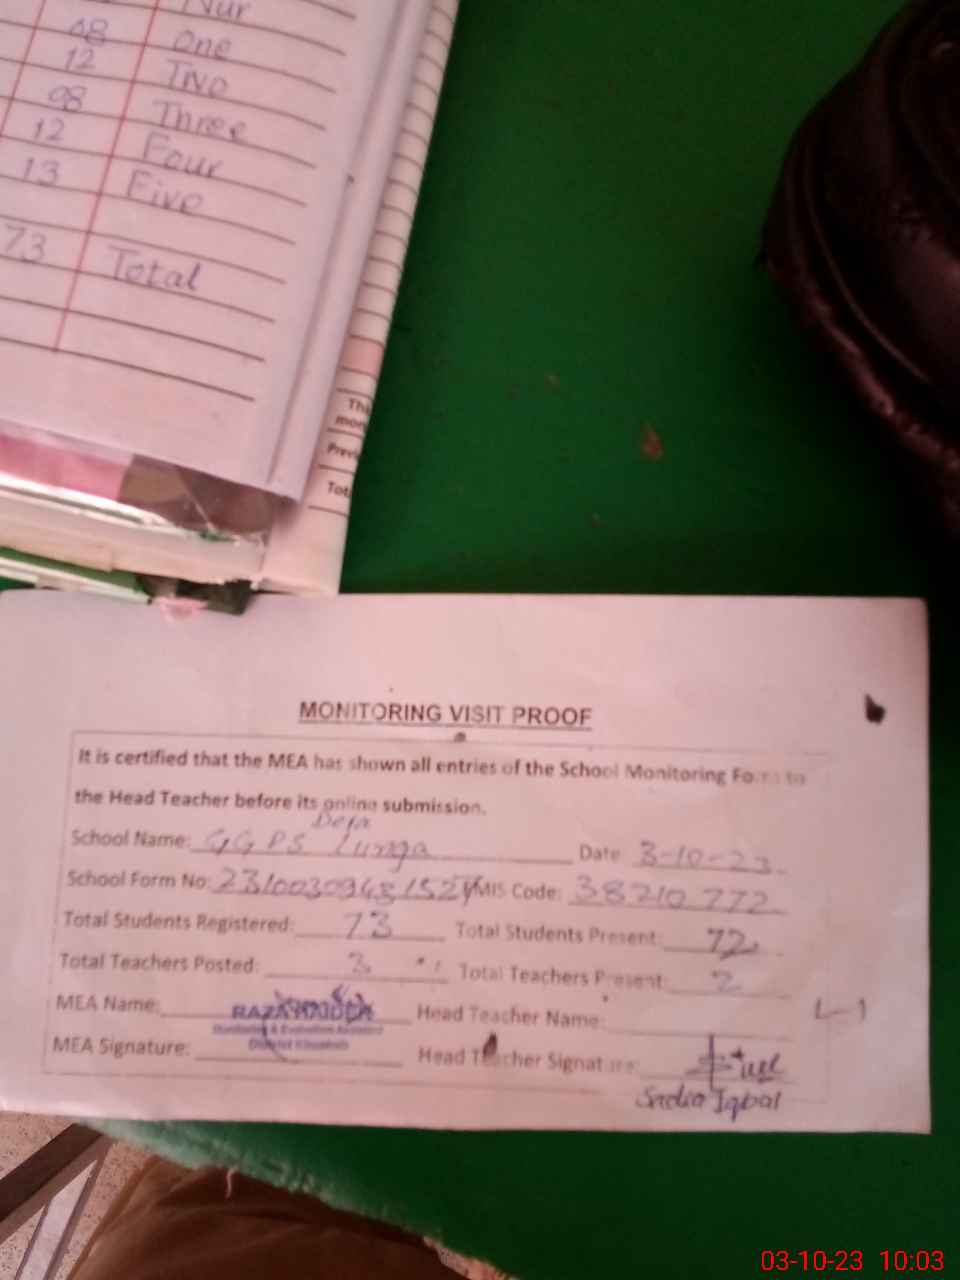 Nur
08 One
12 Two
08 Three
12 Four
13 Five
73 Total
Previ
MONITORING VISIT PROOF
It is certified that the MEA has shown all entries of the School Monitoring Form to
the Head Teacher before its online submission.
School Name: GGPS Dera Lunga Date 3-10-23
School Form No: MIS Code: 38210772
Total Students Registered: 73 Total Students Present: 72
Total Teachers Posted: 3 Total Teachers Present: 2
MEA Name: RAZA HAIDER Head Teacher Name: L-1
Monitoring & Evaluation Assistant
District Khushab
MEA Signature: Head Teacher Signature:
Sadia Iqbal
03-10-23 10:03